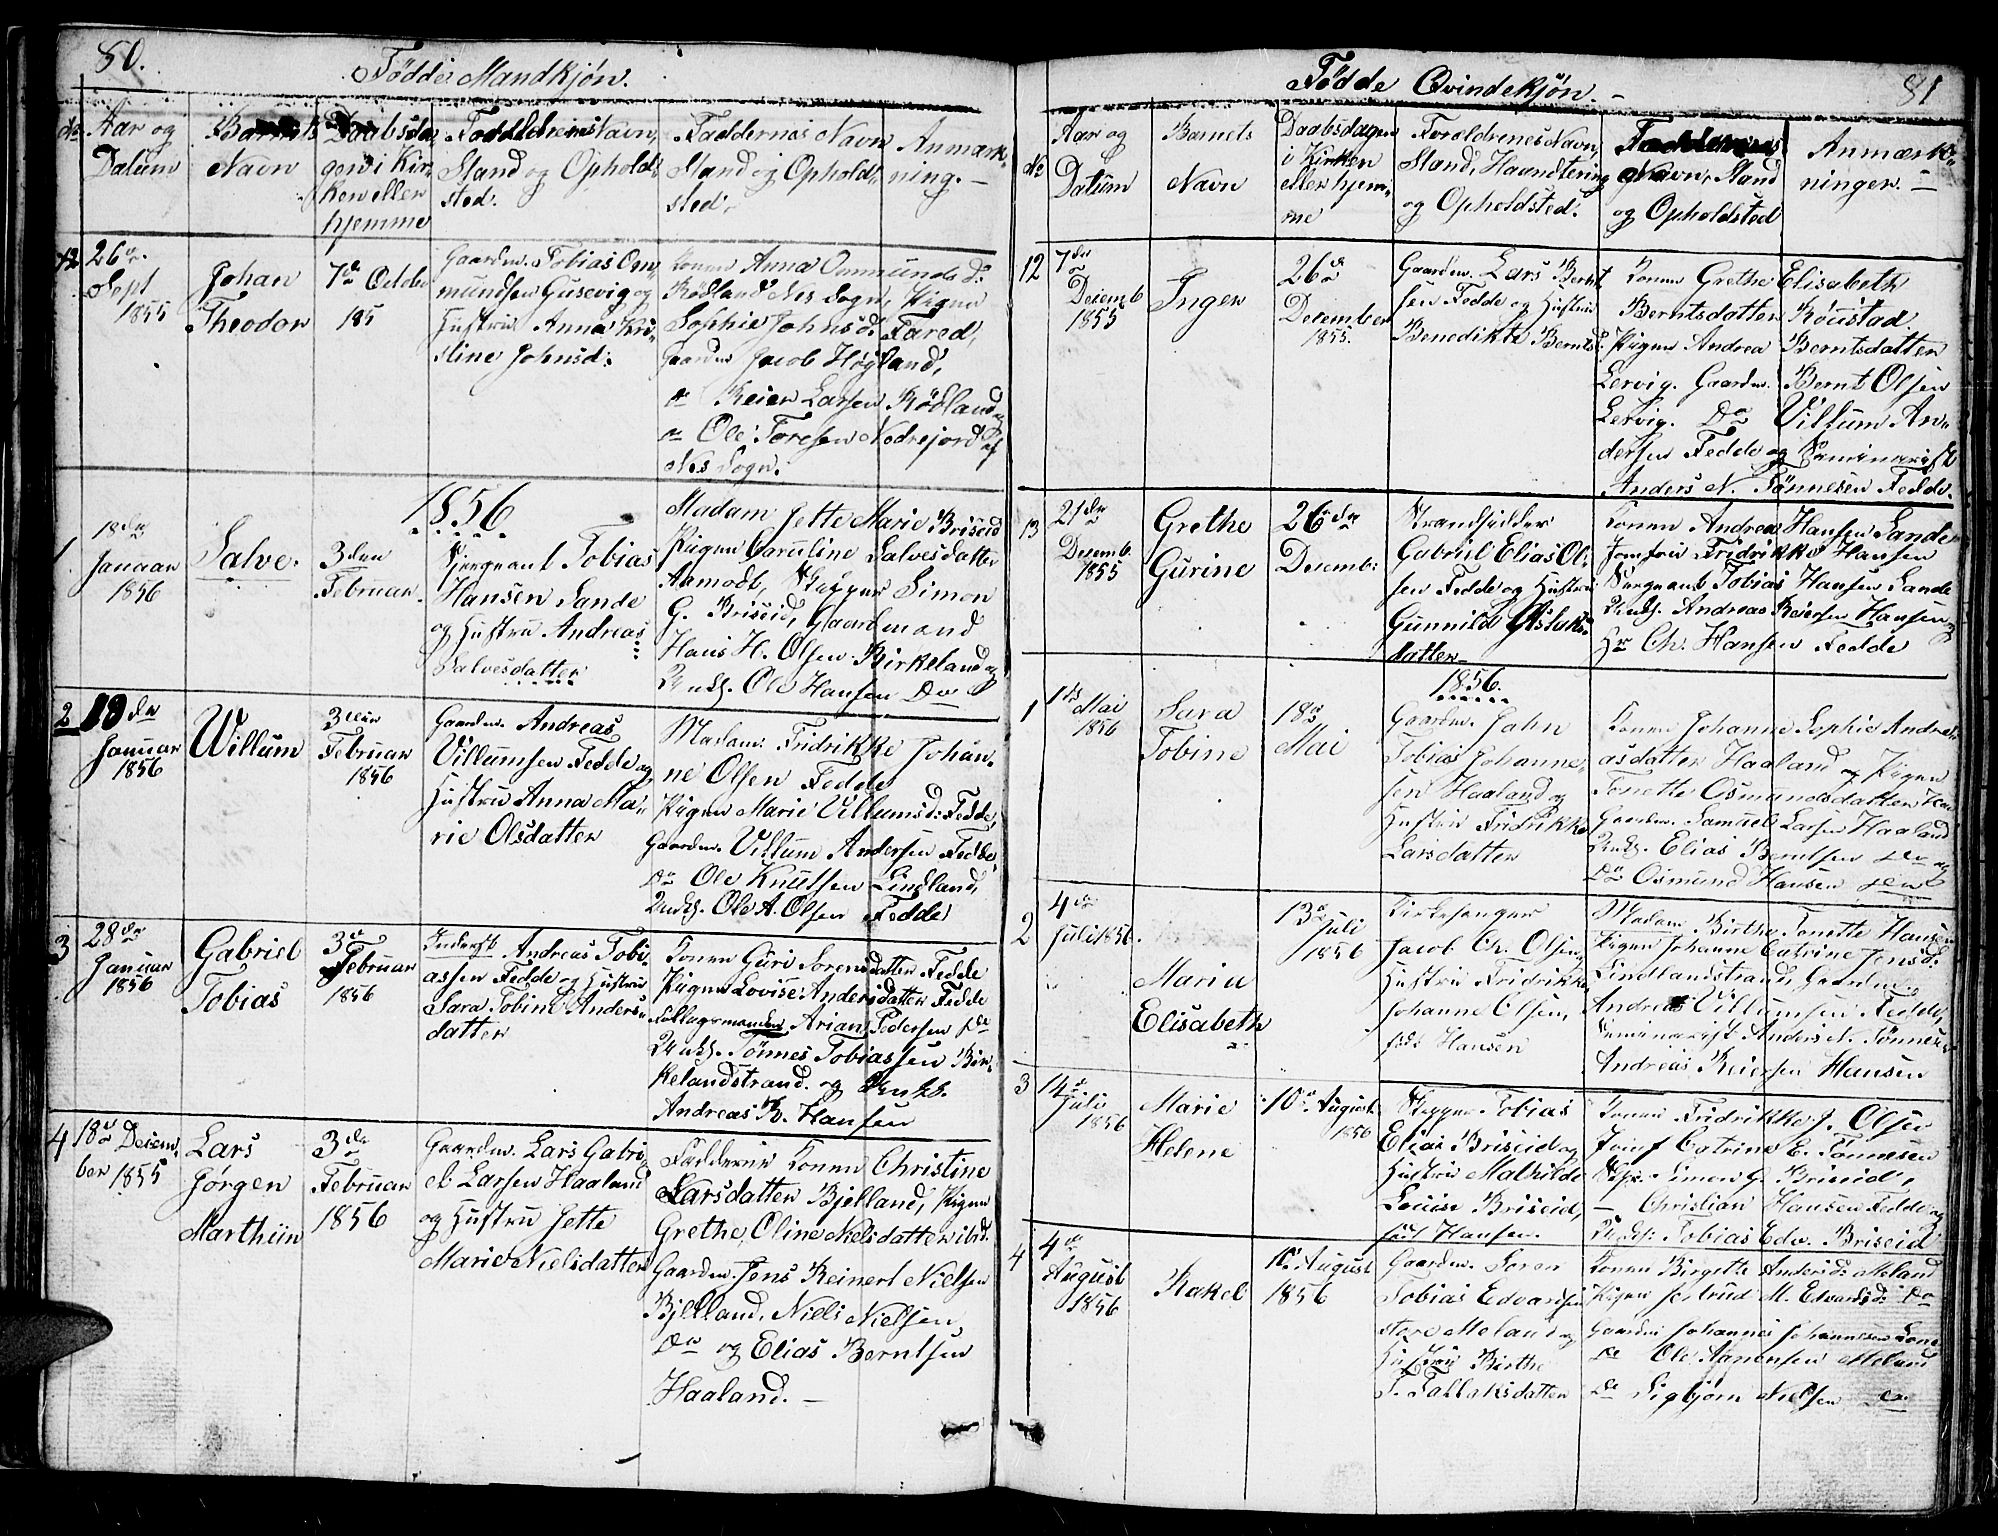 80.
Fødde Mandkjøn.
No
Aar og
Datum
Barnets
Navn
Daabsda
gen i Kir-
ken eller
hjemme
Forældrenes Navn,
Stand og Opholds-
sted.
Faddernes Navn
Stand og Opholds-
sted.
Anmærk-
ning. —
12
26de
Sept
1855
Johan
Theodor
7de October
185
Gaardm. Tobias Om-
mundsen Gusevig og
Hustru Anna Kri-
stine Johnsd:
Konen Anna Ommunds D:
Rödland Nes Sogn, Pigen
Sophie Johnsd. Fared,
Gaardm Jacob Høyland,
do Reier Larsen Rödland og
do Ole Toresen Nedrejord af
Nes Sogn.
1856
1.
18de
Januar
1856
Salve.
3den
Februar.
Sergeant Tobias
Hansen Sande
og Hustru Andreas
Salvesdatter
Madam Jette Marie Briseid
Pigen Caruline Salvesdatter
Aamodt, Skipper Simon
G. Briseid, Gaardmand
Hans H. Olsen Birkeland og
Unks. Ole Hansen Do
2
19de
Januar
1856
Willum
3den
Februar
1856
Gaardm. Andreas
Villumsen Fedde og
Hustru Anna Ma-
rie Olsdatter
Madam. Fridrikke Johan-
ne Olsen Fedde
Pigen Marie Villumsd: Fedde,
Gaardm. Villum Andersen Fedde
Do Ole Knutsen Lindland,
Unks. Ole A. Olsen Fedde
3
28de
Januar
1856
Gabriel
Tobias
3de
Februar
1856
Inderst Andreas Tobi-
assen Fedde og Hustru
Sara Tobine Anders-
datter
Konen Guri Sorensdatter Fedde
Pigen Lovise Andersdatter Fedde
Arian Pedersen Do
Unks. Tönnes Tobiassen Bir-
kelandstrand. og Unks.
Andreas R. Hansen
4
18de Decem-
ber 1855
Lars
Jørgen
Marthin
3de
Februar
1856
Gaardm. Lars Gabri-
el Larsen Haaland
og Hustru Jette
Marie Nielsdatter
Fadderne Konen Christine
Larsdatter Bjelland, Pigen
Grethe Oline Nielsdatter ibd.
Gaardm. Jens Reinert Nielsen
Bjelland, Niels Nielsen,
Do og Elias Berntsen
Haaland. —
81
Fødde Qvindekjön. —
No
Aar og
Datum
Barnets
Navn
Daabsdagen
i Kirken
eller hjem-
me
Forældrenes Navn,
Stand, Haandtering
og Opholdsted.
Faddernes
Navn, Stand
og Opholdsted
Anmærk-
ninger. —
12
7de
Decemb
1855
Inger
26de
December
1855.
Gaardm. Lars Bernt
sen Fedde og Hustru
Benedikte Berntsd.
Konen Grethe Elisabeth
Berntsdatter Röustad
Pigen Andrea Berntsdatter
Lervig. Gaardm. Bernt Olsen
Lervig. Do Villum An-
dersen Fedde og Seminarist
Anders N. Tönnesen Fedde.
13
21de
Decemb.
1855
Grethe
Gurine
26de
Decemb:
Strandsidder
Gabriel Elias Ol-
sen Fedde og Hustru
Gunnild Aslaks-
datter
Konen Andrea Hansen Sande
Jomfru Fridrikke Hansen
Sergeant Tobias Hansen Sande
Unks. Andreas Reiersen Hansen og
Hr Ch. Hansen Fedde
1856.
1
1ste Mai
1856
Sara
Tobine
18de
Mai
Gaardm. John
Tobias Johanne-
sen Haaland og
Hustru Fridrikke
Larsdatter
Konen Johanne Sophie Andre-
asdatter Haaland og Pigen
Tonette Osmundsdatter
Gaardm. Samuel Larsen Haaland
Unks. Elias Berntsen Do og
Do Osmund Hansen
2
4de
Juli 1856.
Maria
Elisabeth
13de
Juli
1856
Kirkesanger
Jacob Ch. Olsen,
Hustru Fridrikke
Johanne Olsen,
föds Hansen
Madam Birthe Tonette Hansen
Pigen Johanne Catrine Jensd:
Lindlandstrand, Gaardm.
Andreas Villumsen Fedde,
Seminarist Anders N. Tönnesen
Andreas Reiersen Hansen
3
14de
Juli
1856
Marie
Helene
10de August
1856
Skipper Tobias
Elias Briseid og
Hustru Mathilde
Louise Briseid,
föd Hansen.
Konen Fridrikke J. Olsen
Jomf Catrine E. Tönnesen
Skpr. Simon G. Briseid,
— Christian Hansen Fedde og
Unks: Tobias Edv. Briseid
4
4de
August
1856
Rakel
10de August
1856
Gaardm. Soren
Tobias Edvardsen
store Meland og
Hustru Birthe
T. Tallaksdatter
Konen Birgette Andersd: Meland
Pigen Jertrud M. Edvardsd: Do
Gaardm Johannes Johannessen
Do Ole Aanensen Meland
Do Sigbjörn Nielsen Do